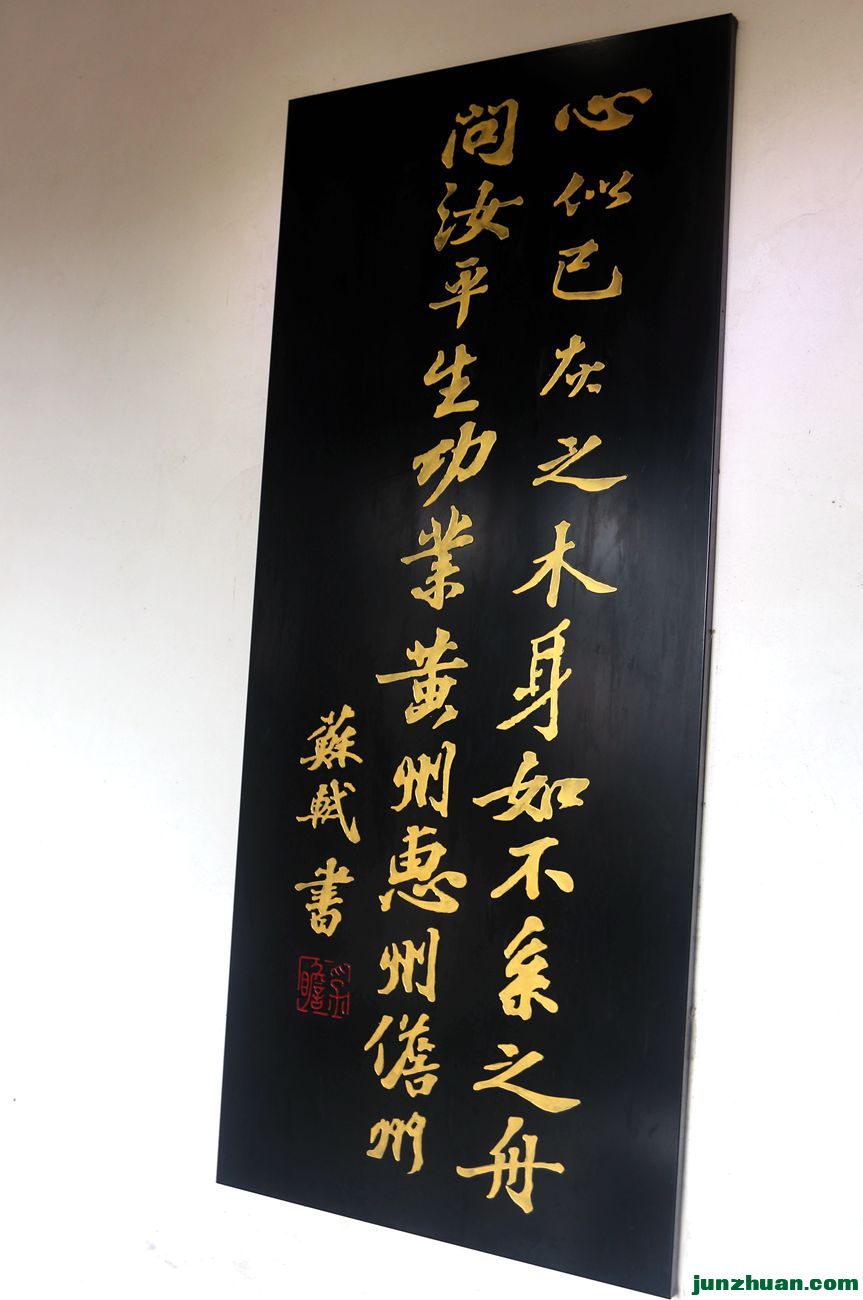 心似已灰之木身如不系之舟
问汝平生功业黄州惠州儋州
蘇軾書
子瞻
junzhuan.com